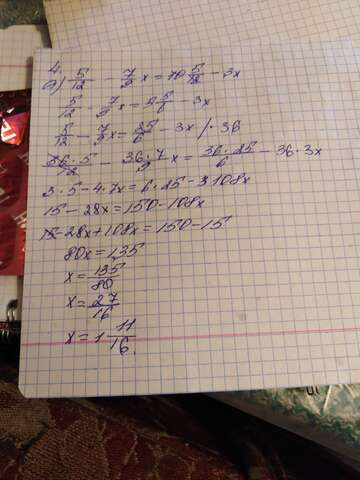 4.
a) 5/12 - 7/9 x = 10 5/12 - 3x
5/12 - 7/9 x = 4 5/6 - 3x
5/12 - 7/9 x = 25/6 - 3x /·36
36·5/12 - 36·7/9 x = 36·25/6 - 36·3x
3·5-4·7x=6·25-108x
15-28x=150-108x
-28x+108x=150-15
80x=135
x=135/80
x=27/16
x=1 11/16.